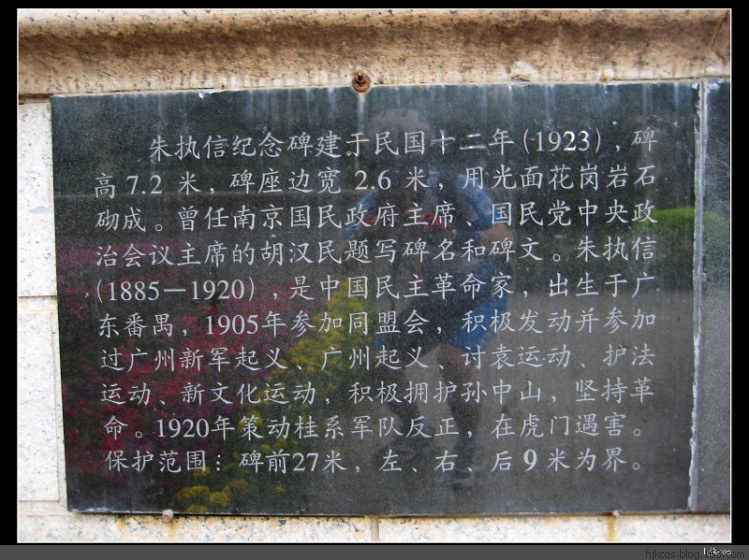 朱执信纪念碑建于民国十二年(1923),碑
高7.2 米,碑座边宽 2.6 米,用光面花岗岩石
砌成。曾任南京国民政府主席、国民党中央政
治会议主席的胡汉民题写碑名和碑文。朱执信
(1885－1920),是中国民主革命家,出生于广
东番禺,1905年参加同盟会,积极发动并参加
过广州新军起义、广州起义、讨袁运动、护法
运动、新文化运动,积极拥护孙中山,坚持革
命。1920年策动桂系军队反正,在虎门遇害。
保护范围：碑前27米,左、右、后9米为界。